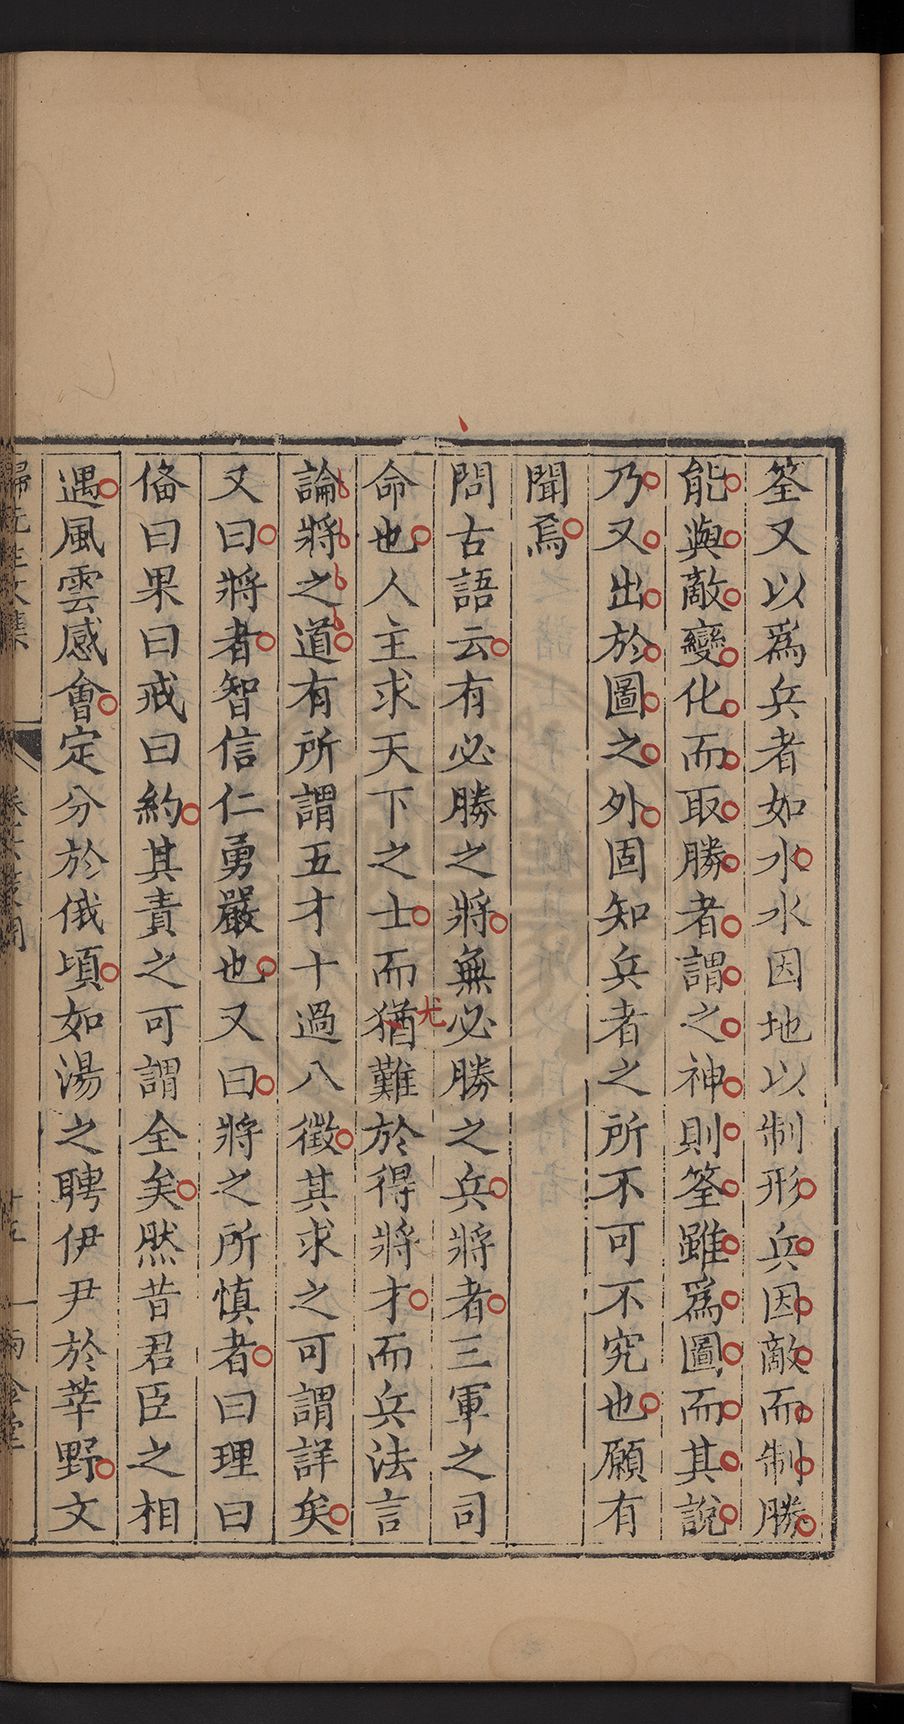 筌又以爲兵者如水水因地以制形兵因敵而制勝
能與敵變化而取勝者謂之神則筌雖爲圖而其說
乃又出於圖之外固知兵者之所不可不究也願有
聞焉
問古語云有必勝之將無必勝之兵將者三軍之司
命也人主求天下之士而猶難於得將才而兵法言
尤
論將之道有所謂五才十過八徵其求之可謂詳矣
又曰將者智信仁勇嚴也又曰將之所慎者曰理曰
俻曰果曰戒曰約其責之可謂全矣然昔君臣之相
遇風雲感會定分於俄頃如湯之聘伊尹於莘野文